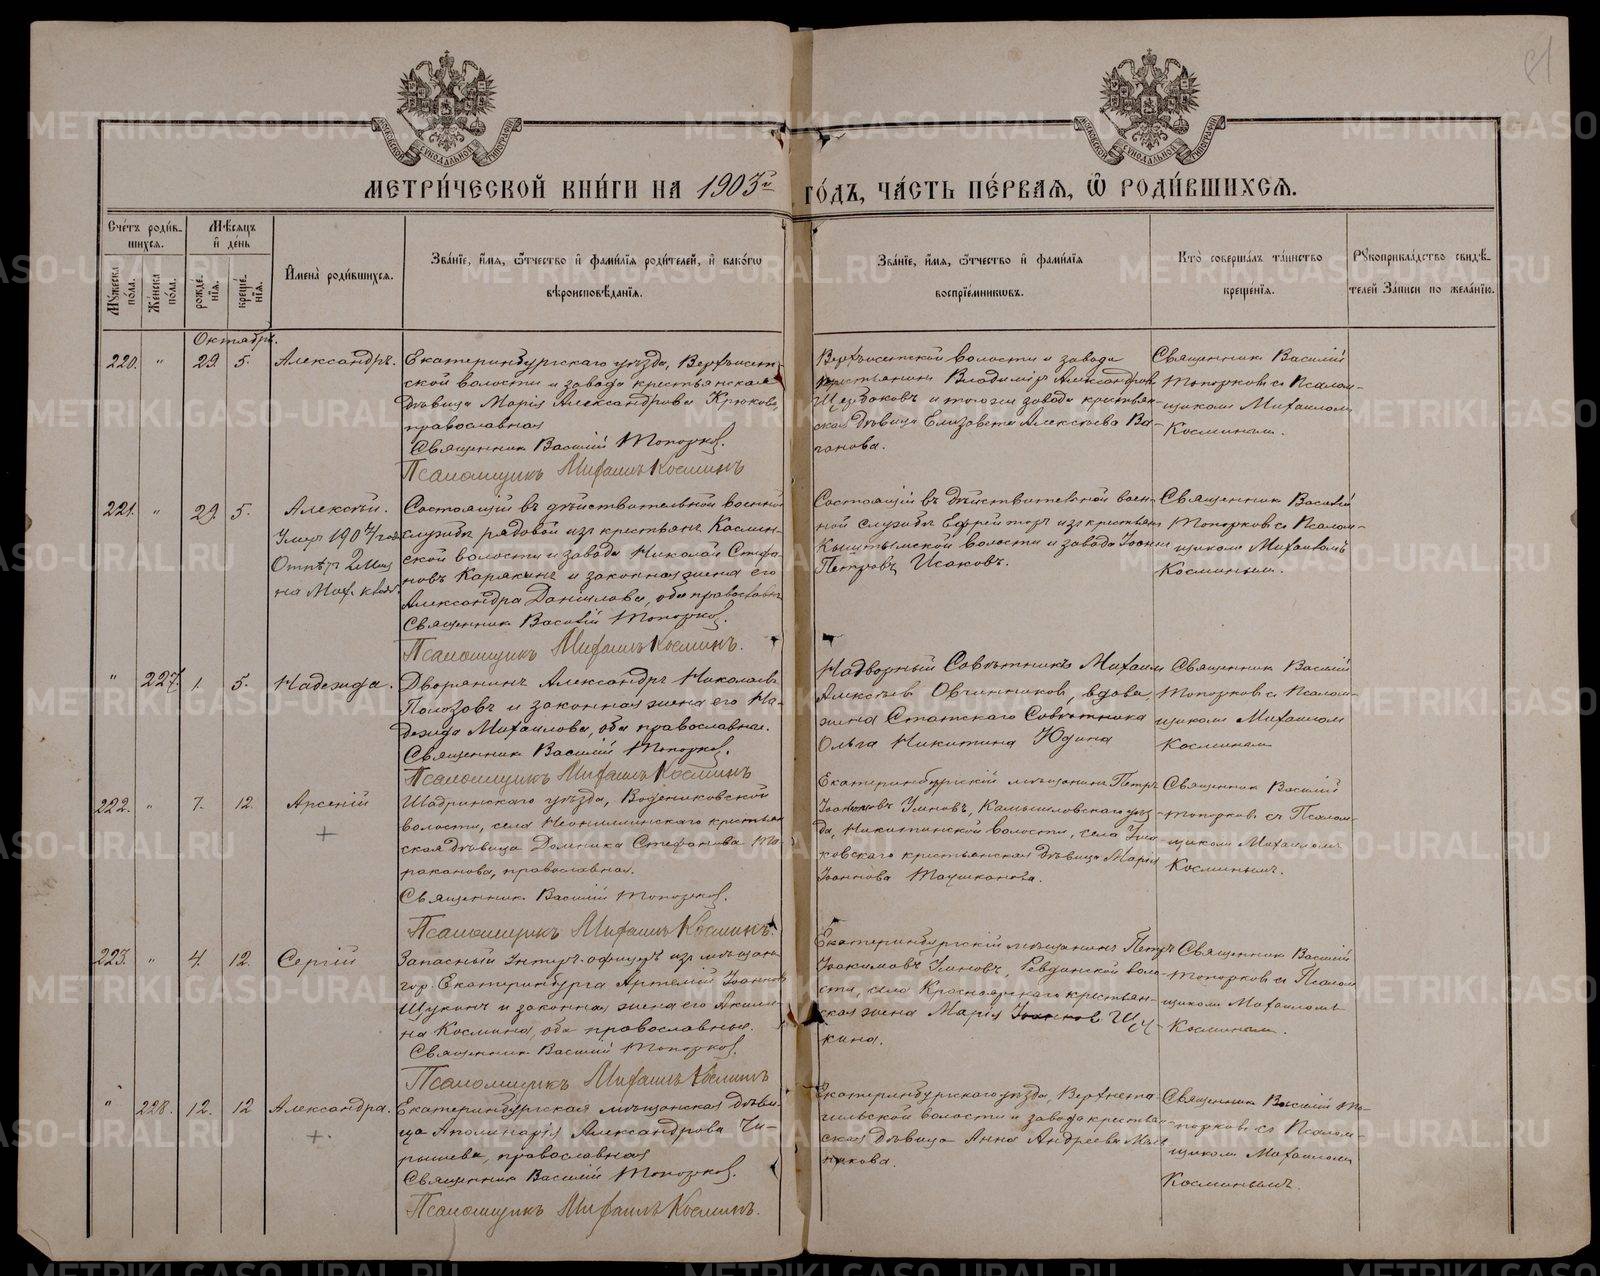 МЕТРИ́ЧЕСКОЙ КНИ́ГИ НА 1903й ГО́ДЪ, ЧА́СТЬ ПЕ́РВАЯ, Ѿ РОДИ́ВШИХСЯ.
Сче́тъ роди́в-
шихся.
Му́жеска по́ла.
Же́нска по́ла.
Мѣ́сяцъ
и҆ де́нь
рожде́-
нїя.
креще́-
нїя.
И҆мена̀ роди́вшихся.
Зва́нїе, и҆́мя, ѻ҆́тчество и҆ фами́лїя роди́телей, и҆ како́гѡ
вѣроисповѣ́данїя.
Зва́нїе, и҆́мя, ѻ҆́тчество и҆ фами́лїя
воспрїе́мникѡвъ.
Кто̀ соверша́лъ та́инство
креще́нїя.
Рꙋкоприкла́дство свидѣ́-
телей за́писи по жела́нїю.
Октябрь.
220.
"
29.
5.
Александръ.
Екатеринбургскаго уѣзда, Верхъисет-
ской волости и завода крестьянская
дѣвица Марія Александрова Крюкова,
православная
Священникъ Василій Топорков.
Псаломщикъ Михаилъ Косминъ
Верхъисетской волости и завода
крестьянинъ Владиміръ Александров
Щербаковъ и того же завода крестьян-
ская дѣвица Елизавета Алексѣева Ва-
ганова.
Священникъ Василій
Топорков съ Псалом-
щикомъ Михаиломъ
Косминымъ.
221.
"
29.
5.
Алексѣй.
Умеръ 1904 года
на Мих. кладб.
Состоящій въ дѣйствительной военной
службѣ рядовой изъ крестьянъ Каслин-
ской волости и завода Николай Стефа-
новъ Карякинъ и законная жена его
Александра Данилова, оба православные
Священникъ Василій Топорков.
Псаломщикъ Михаилъ Косминъ.
Состоящій въ дѣйствительной воен-
ной службѣ Ефрейторъ изъ крестьян
Кыштымской волости и завода Іоаннъ
Петровъ Исаковъ.
Священникъ Василій
Топорков съ Псалом-
щикомъ Михаиломъ
Косминымъ.
"
227.
1.
5.
Надежда.
Дворянинъ Александръ Николаевъ
Полозовъ и законная жена его На-
дежда Михаилова, оба православные.
Священникъ Василій Топорков.
Псаломщикъ Михаилъ Косминъ
Надворный Совѣтникъ Михаилъ
Алексѣевъ Овчинниковъ, вдова
жена Статскаго Совѣтника
Ольга Никитина Юдина
Священникъ Василій
Топорков съ Псалом-
щикомъ Михаиломъ
Косминымъ
222.
"
7.
12.
Арсеній
+
Шадринскаго уѣзда, Водениковской
волости, села Неонилинскаго крестьян
ская дѣвица Домника Стефанова Та-
раканова, православная.
Священникъ Василій Топорков.
Псаломщикъ Михаилъ Косминъ.
Екатеринбургскій мѣщанинъ Петръ
Умновъ, Камышловскаго уѣз-
да, Никитинской волости, села
крестьянская дѣвица Марія
Іоаннова Таушканова.
Священникъ Василій
Топорков съ Псалом-
щикомъ Михаиломъ
Косминымъ.
223.
"
4.
12.
Сергій
Запасный Унтеръ-офицеръ изъ мѣщанъ
гор. Екатеринбурга Артемій Іоанновъ
Щукинъ и законная жена его Акили-
на Космина, оба православные.
Священникъ Василій Топорков.
Псаломщикъ Михаилъ Косминъ
Екатеринбургскій мѣщанинъ Петръ
Іоакимовъ Умновъ, Ревдинской воло-
сти, села Красноярскаго крестьян-
ская жена Марія Іоаннов. Щу-
кина.
Священникъ Василій
Топорков съ Псалом
щикомъ Михаиломъ
Косминымъ.
"
228.
12.
12
Александра.
+.
Екатеринбургская мѣщанская дѣви-
ца Аполинарія Александрова Чи-
рышева, православная
Священникъ Василій Топорков.
Псаломщикъ Михаилъ Косминъ.
Екатеринбургскаго уѣзда, Верхнета-
гильской волости и завода крестьян-
ская дѣвица Анна Андреева Мель
никова.
Священникъ Василій То-
порков съ Псалом-
щикомъ Михаиломъ
Косминымъ.
METRIKI.GASO-URAL.RU